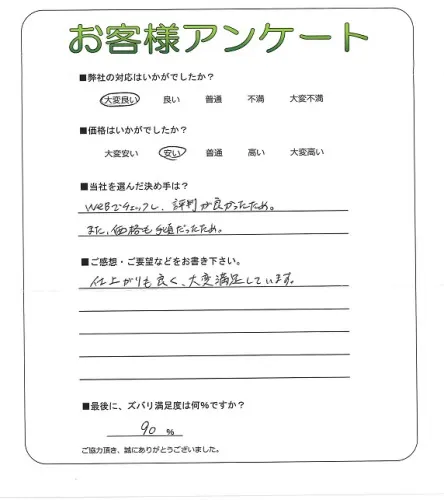 お客様アンケート
■弊社の対応はいかがでしたか?
大変良い 良い 普通 不満 大変不満
■価格はいかがでしたか?
大変安い 安い 普通 高い 大変高い
■当社を選んだ決め手は?
WEBでチェックし、評判が良かったため。
また、価格も手頃だったため。
■ご感想・ご要望などをお書き下さい。
仕上がりも良く、大変満足しています。
■最後に、ズバリ満足度は何%ですか?
90 %
ご協力頂き、誠にありがとうございました。